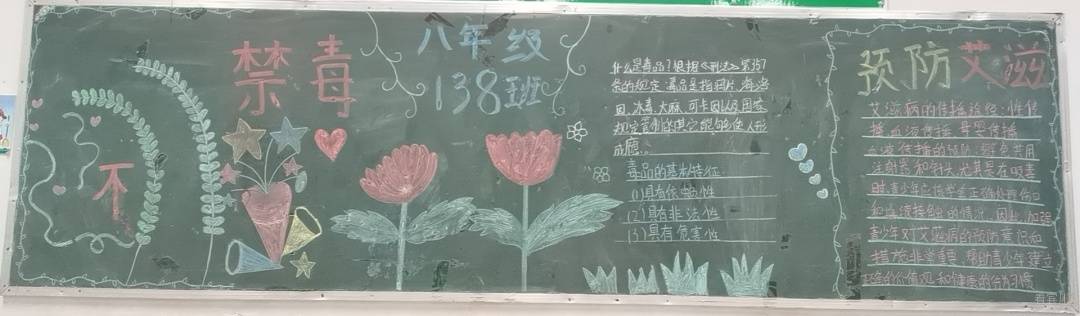 禁毒
不
八年级
138班
什么是毒品?根据《刑法》第357
条的规定,毒品是指鸦片、海洛
因、冰毒、大麻、可卡因以及国家
规定管制的其它能够使人形
成瘾。
毒品的基本特征:
(1)具有依赖性
(2)具有非法性
(3)具有危害性
预防艾滋
艾滋病的传播途径:性传
播、血液传播、母婴传播
血液传播的预防:避免共用
注射器和针头,尤其是在吸毒
时,青少年应
和血液接触的情况,因此,加强
青少年对艾滋病的预防意识和
措施非常重要,帮助青少年建立
正确价值观和健康的行为习惯